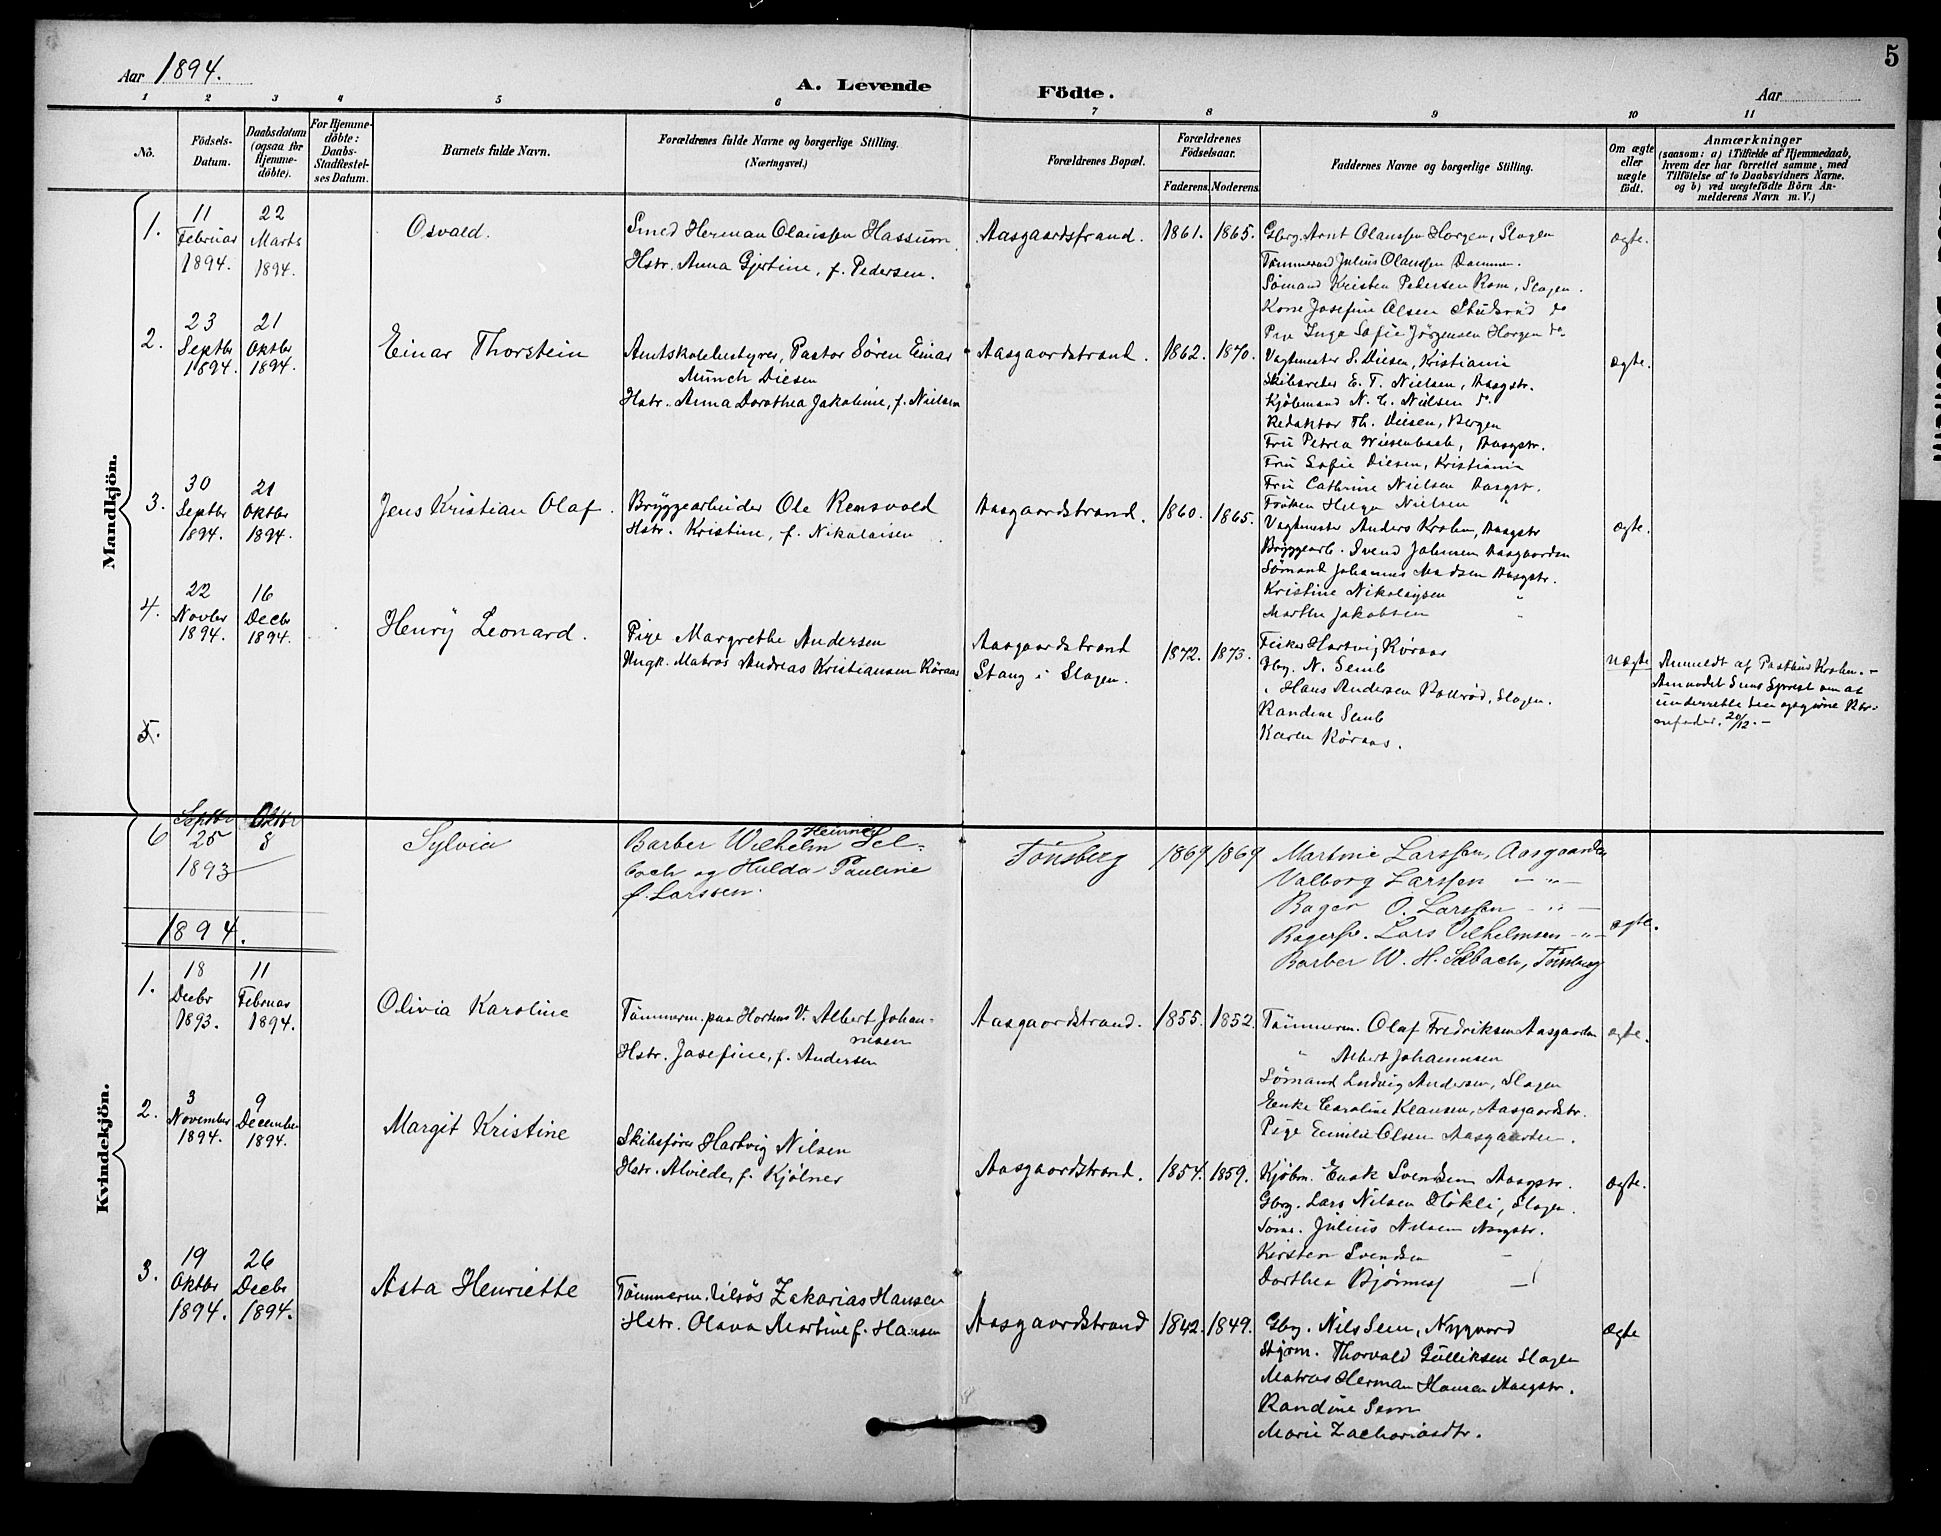 5
Aar 1894.
A. Levende Födte.
Aar
1 2 3 4 5 6 7 8 9 10 11
Nò.
Födsels-Datum.
Daabsdatum (ogsaa for Hjemme-döbte).
For Hjemme-döbte: Daabs-Stadfæstel-ses Datum.
Barnets fulde Navn.
Forældrenes fulde Navne og borgerlige Stilling. (Næringsvei.)
Forældrenes Bopæl.
Forældrenes Födselsaar.
Faderens. Moderens.
Faddernes Navne og borgerlige Stilling.
Om ægte eller uægte födt.
Anmærkninger
(saasom: a) i Tilfælde af Hjemmedaab, hvem der har forrettet samme, med Tilföielse af to Daabsvidners Navne, og b) ved uægtefödte Börn An-melderens Navn m. V.)
Mandkjön.
1.
11 Februar 1894.
22 Marts 1894.
Osvald.
Smed Herman Olaussen Hassum.
Hstr. Anna Gjertine, f. Pedersen.
Aasgaardstrand.
1861. 1865.
Gbrg. Arnt Olaussen Horgen, Slagen
Tømmermd Julius Olaussen Dammen.
Sømand Kristen Pedersen Rom, Slagen.
Kone Josefine Olsen do
Pige Inga Sofie Jörgensen Horgen do
ægte.
2.
23 Septbr 1894.
21 Oktbr 1894.
Einar Thorstein
Amtskolebestyrer, Pastor Sören Einar
Münch Diesen
Hstr. Anna Dorothea Jakobine, f. Nielsen
Aasgaardstrand.
1862. 1870.
Vagtmester S. Diesen, Kristiania
Skibsreder E. T. Nielsen, Aasgstr.
Kjöbmand N. C. Nielsen do.
Redaktør Th. Diesen, Bergen
Fru Petrea Wiesenbach, Aasgstr.
Fru Sofie Diesen, Kristiania
Fru Cathrine Nielsen Aasgstr.
Frøken Helga Nielsen "
ægte.
3.
30 Septbr 1894.
21 Oktbr 1894.
Jens Kristian Olaf.
Bryggearbeider Ole Remsvold
Hstr. Kristine, f. Nikolaisen
Aasgaardstrand.
1860. 1865.
Vagtmester Anders Krohn, Aasgstr
Bryggearb. Svend Johnsen Aasgaarden
Sømand Johannes Madsen Aasgstr.
Kristine Nikolaysen "
Marthe Jakobsen "
ægte.
4.
22 Novbr 1894.
16 Decbr 1894.
Henry Leonard.
Pige Margrethe Andersen
Ungk. Matros Andreas Kristiansen Röraas
Aasgaardstrand
Stang i Slagen.
1872. 1873.
Fisker Hartvig Röraas
Gbrg. N. Semb
" Hans Andersen Slagen.
Randine Semb
Karen Röraas.
uægte
Anmeldt af Krohn. –
Anmodet Sems Sprest om at
underrette den opgivne Bar-
nefader. 20/12. –
5.
Kvindekjön.
6
Septbr 25 1893
Oktbr 8
Sylvia
Barber Wilhelm Heinrich Sel-
bach og Hulda Pauline
f. Larssen.
Tönsberg
1869 1869
Martine Larssen, Aasgaarden
Valborg Larssen – " –
Bager O. Larssen – " –
Bagersv. Lars Vilhelmsen – " –
Barber W. H. Selbach, Tönsberg
ægte.
1894.
1.
18 Decbr 1893.
11 Februar 1894.
Olivia Karoline
Tømmerm. paa Hortens V. Albert Johan-
nesen
Hstr. Josefine, f. Andersen
Aasgaardstrand.
1855. 1852.
Tømmerm. Olaf Fredriksen Aasgaarden
" Albert Johannesen
Sømand Ludvig Andersen, Slagen
Enke Caroline Klausen, Aasgaardstr.
Pige Emilie Olsen Aasgaarden.
ægte.
2.
3 November 1894.
9 December 1894.
Margit Kristine
Skibsfører Hartvig Nilsen
Hstr. Alvilde, f. Kjölner
Aasgaardstrand.
1854. 1859.
Kjöbm. Enok Svendsen Aasgstr.
Gbrg. Lars Nilsen Slagen.
Søm. Julius Nilsen Aasgstr.
Kirsten Svendsen –
Dorthea Bjørness –
ægte.
3.
19 Oktbr 1894.
26 Decbr 1894.
Asta Henriette
Tømmerm. Zakarias Hansen
Hstr. Olava Martine f. Hansen
Aasgaardstrand
1842. 1849.
Gbrg. Nils Sem, Nygaard
Styrm. Thorvald Gulliksen Slagen
Matros Herman Hansen Aasgstr.
Randine Sem
Marie Zachariasdtr.
ægte